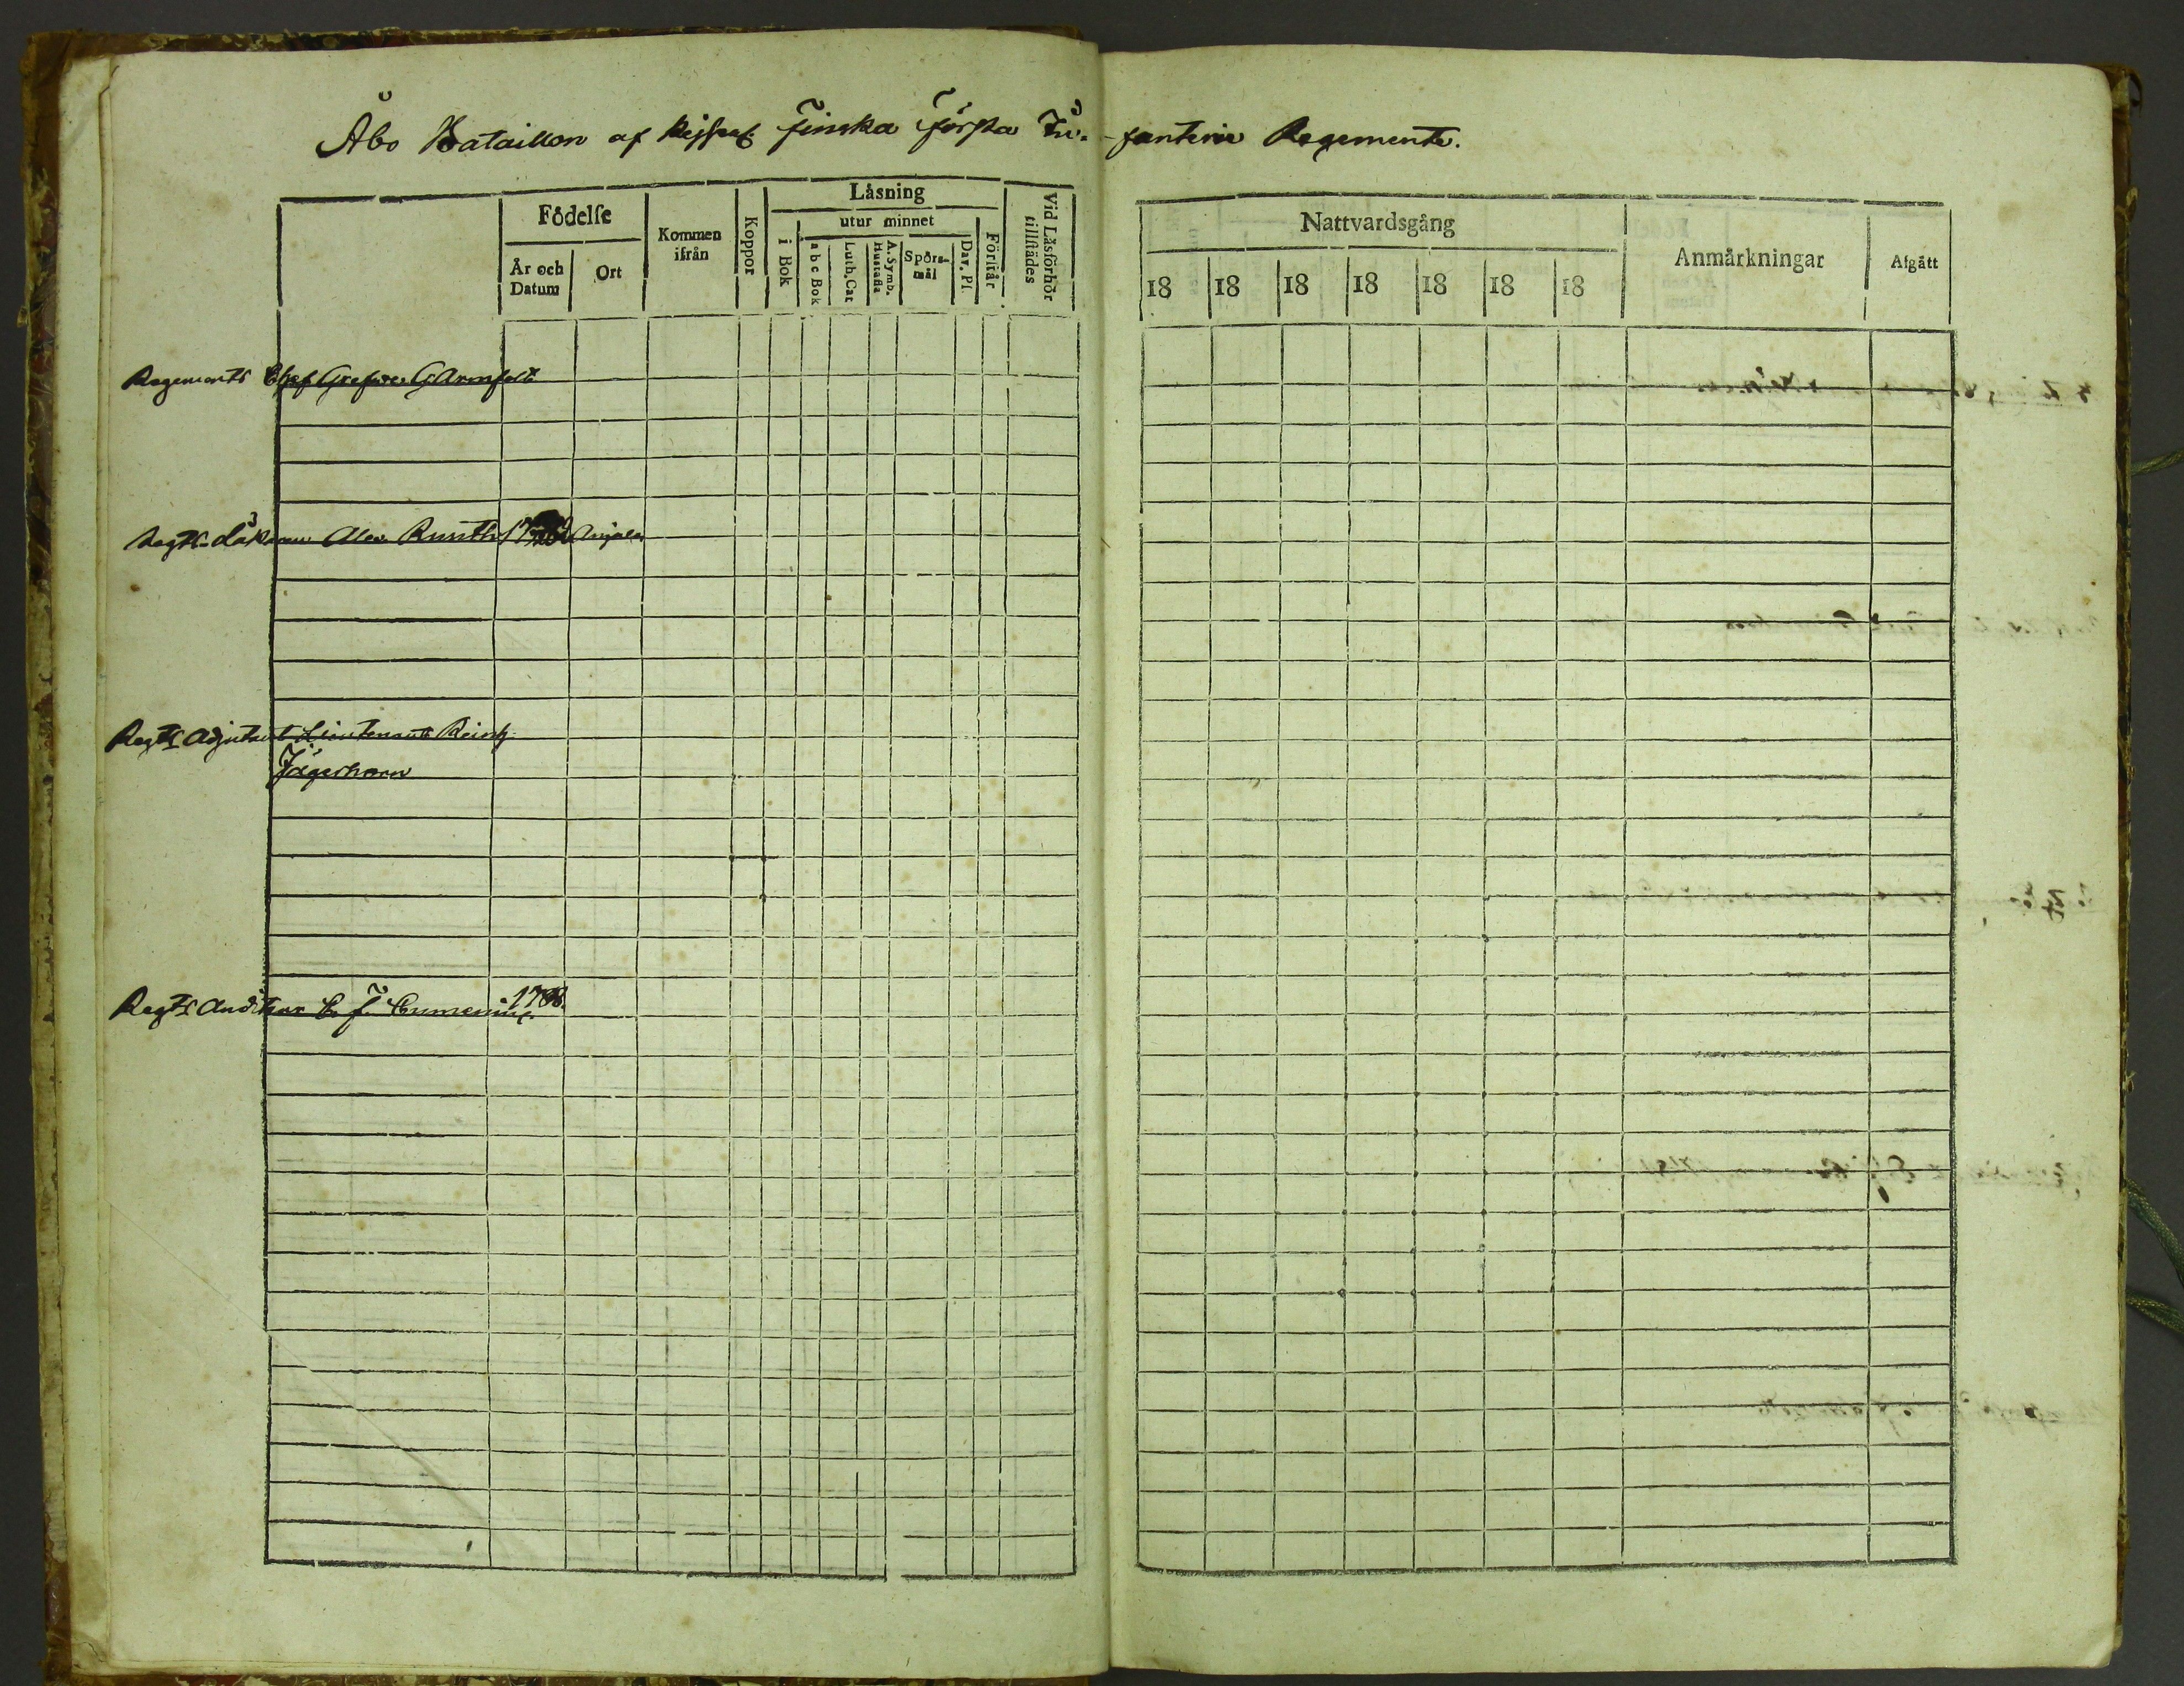 Åbo Bataillon af Kejserl. Finska Första In-fanterie Regemente.
Födelse
År och Datum
Ort
Kommen ifrån
Koppor
Läsning
i Bok
utur minnet
a b c Bok
Luth. Cat
A. Symb. Hustafla
Spörs-mål
Dav. Ps.
Förstår
Vid Läsförhör tillstädes
Nattvardsgång
18 18 18 18 18 18 18
Anmärkningar
Afgått
Regements Chef Grefve G Armfelt
Regts Läkaren Alex. Runth
Regts Adjutant Lieutenant Reinh.
Jägerhorn
Regts Auditeur C. J. 1788.